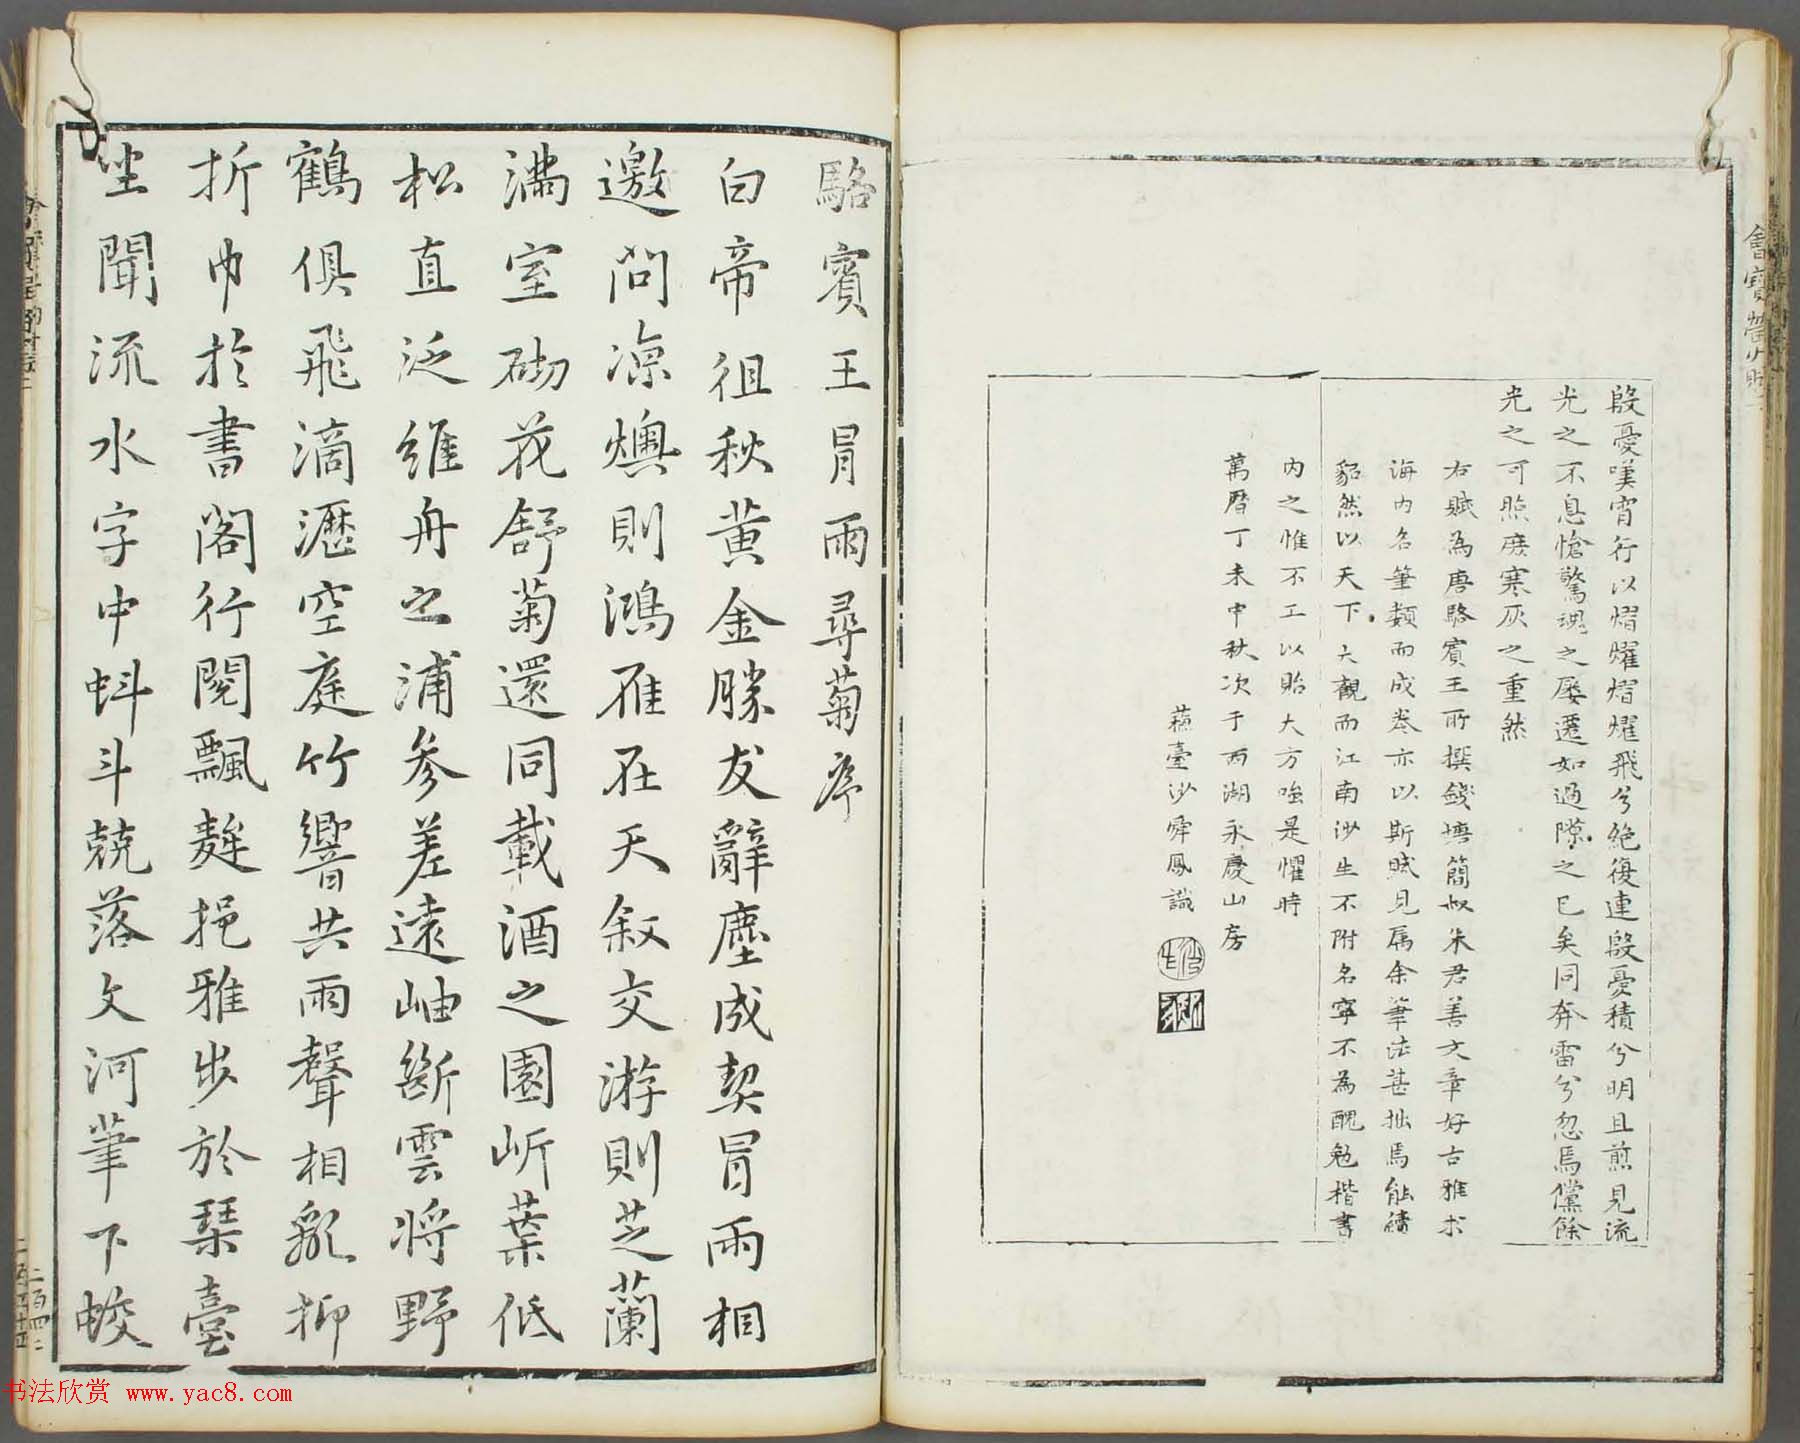 殷憂嘆宵行以熠燿熠燿飛兮絶復連殷憂積兮明且煎見流
光之不息愴驚魂之屢遷如過隙之已矣同奔雷兮忽焉儻餘
光之可照庶寒灰之重然
右賦為唐駱賓王所撰錢塘簡叔朱君善文章好古雅求
海內名筆類而成卷亦以斯賦見屬余筆法甚拙焉能鑄
貂然以天下大觀而江南沙生不附名寧不為醜勉楷書
內之惟不工以貽大方嗤是懼時
萬曆丁未中秋次于西湖永慶山房
蘓臺沙舜鳳識
駱賓王冒雨尋菊序
白帝徂秋黃金勝友辭塵成契冒雨相
邀問凉燠則鴻雁在天叙交游則芝蘭
滿室砌花舒菊還同載酒之園岍葉低
松直泛維舟之浦參差遠岫斷雲將野
鶴俱飛滴瀝空庭竹響共雨聲相亂抑
折巾於書閣行閱飄麰挹雅步於琹臺
坐聞流水字中蚪斗競落文河筆下蛟
書法欣赏 www.yac8.com